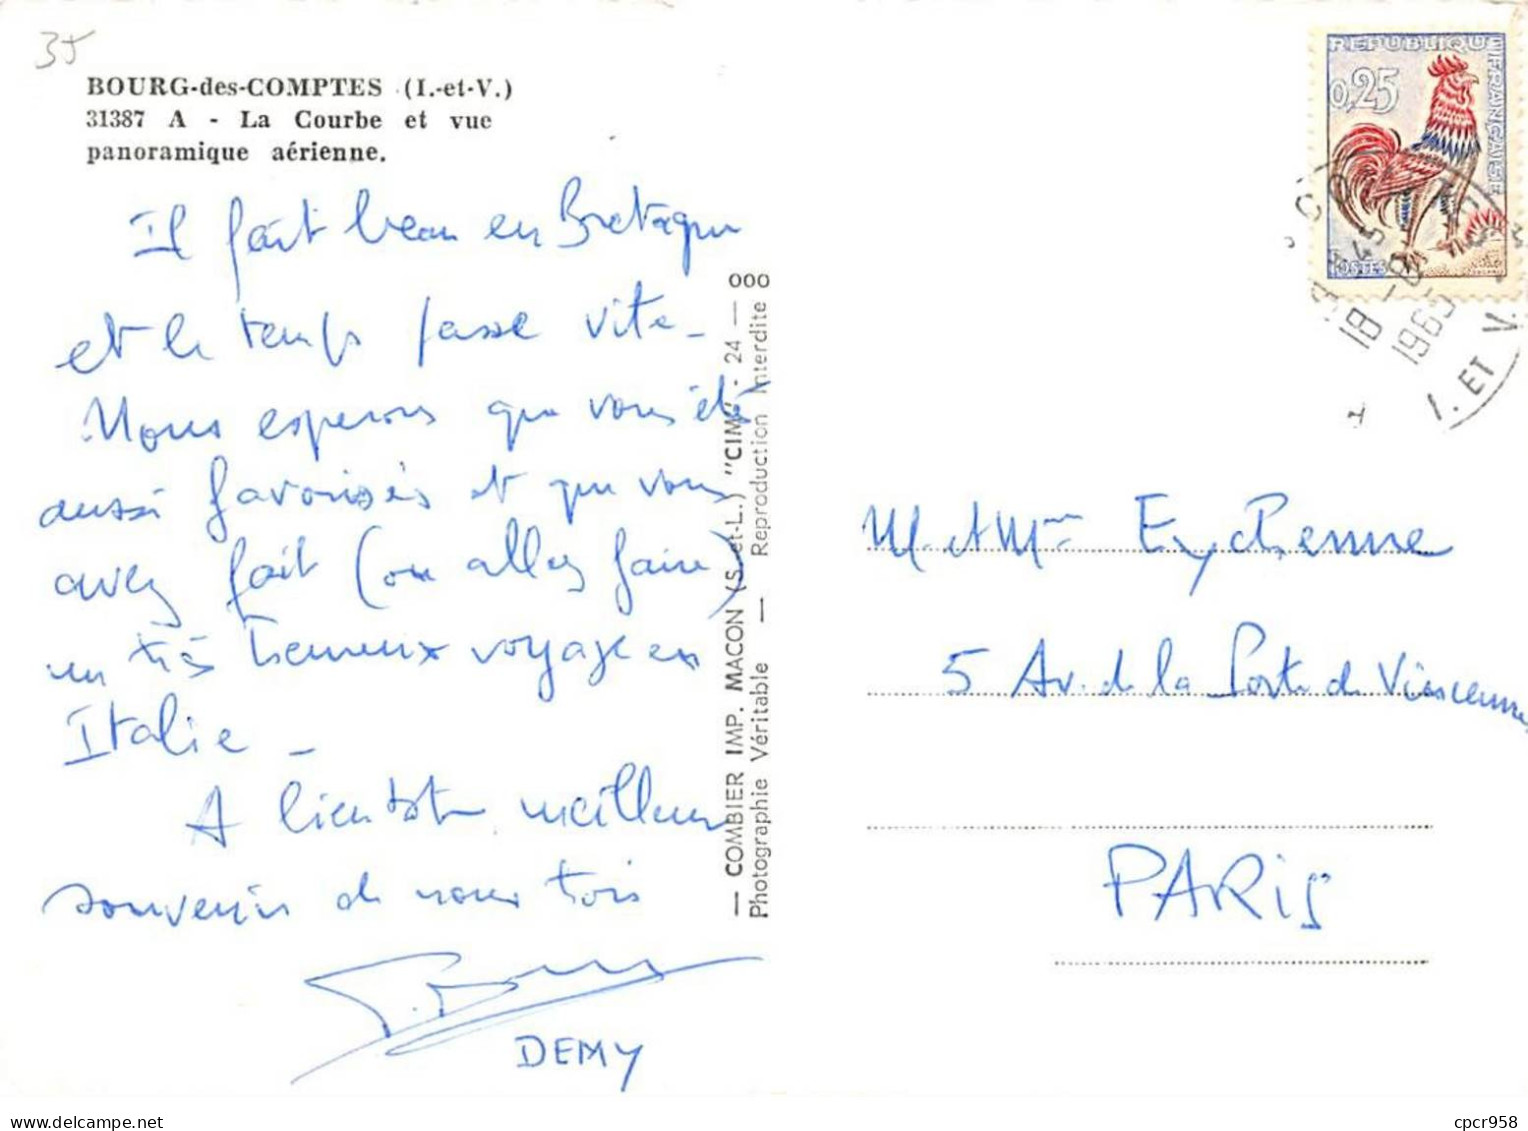 35
BOURG-des-COMPTES (I.-et-V.)
31387 A - La Courbe et vue
panoramique aérienne.
Il fait beau en Bretagne
et le temps passe vite -
Nous esperons que vous été
aussi favorisés et que vous
avez fait (ou allez faire)
un très heureux voyage en
Italie -
A bientôt meilleur
souvenir de nous tois
DEMY
— COMBIER IMP. MACON (S.-et-L.) "CIM" - 24 — 000
Photographie Véritable — Reproduction Interdite
REPUBLIQUE FRANÇAISE
0,25
POSTES
18 -8
1965
I. ET V.
M. et Mme Eychenne
5 Av. de la Porte de Vincennes
PARIS
cpcr958